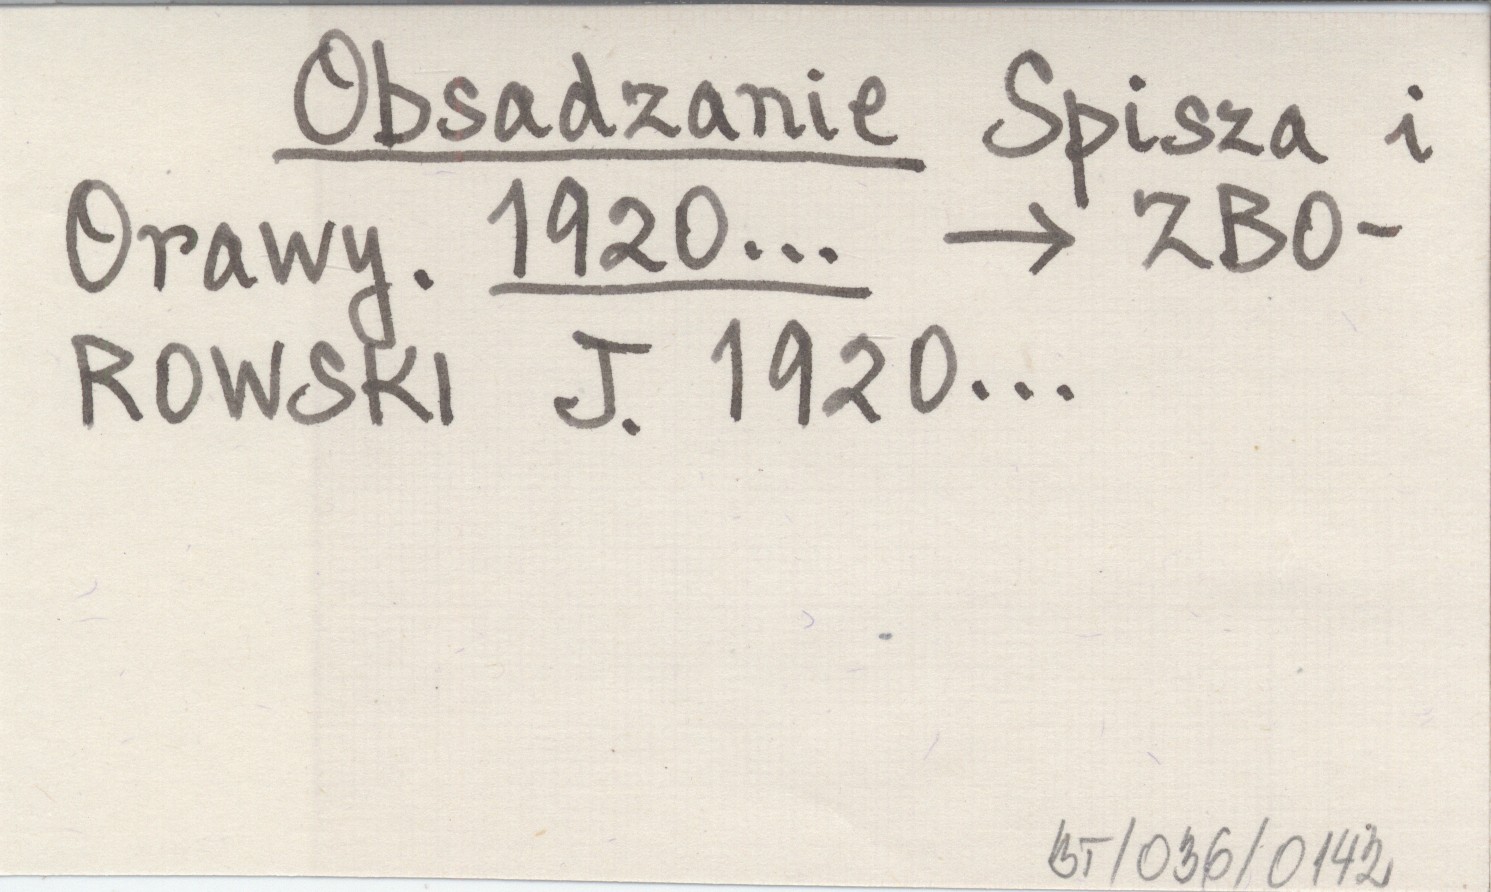 Obsadzanie Spisza i
Orawy. 1920... → ZBO-
ROWSKI J. 1920...
BT/036/0142